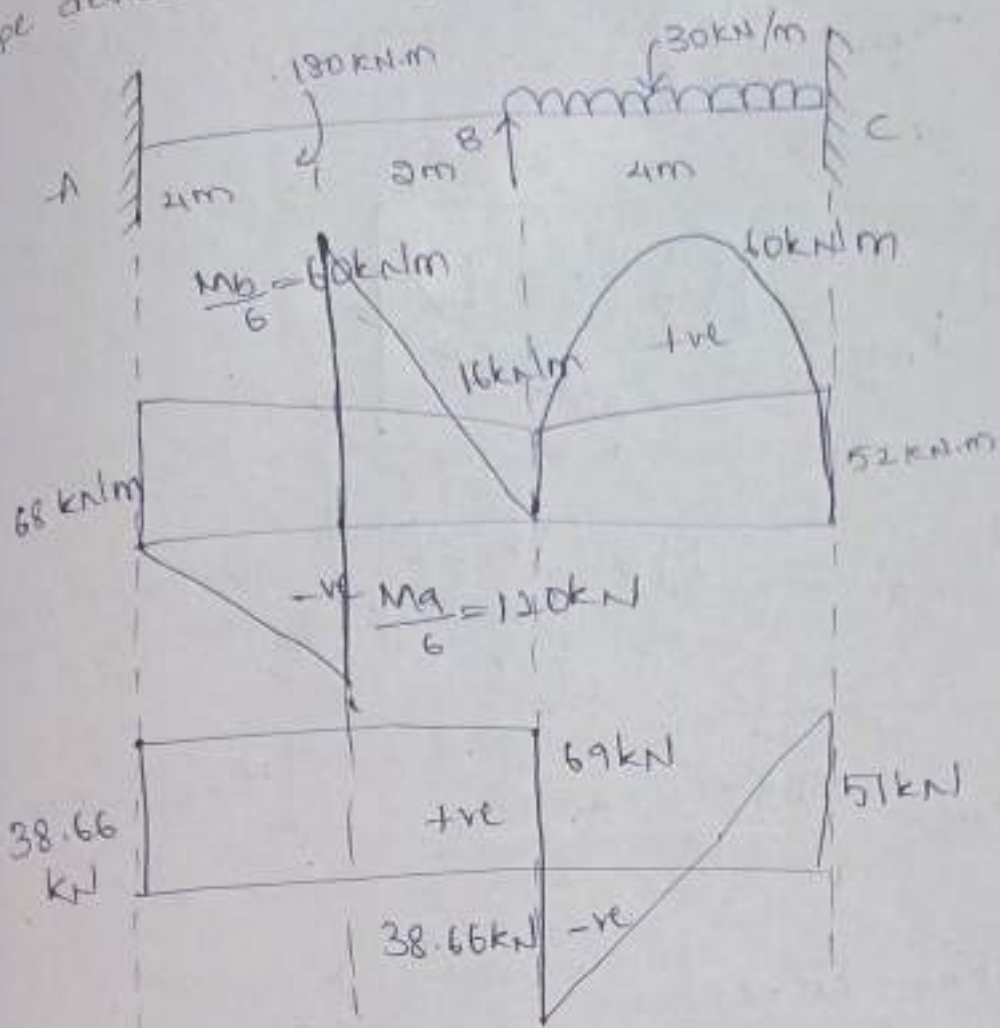 180 kN.m
30kN/m
A
B
C
4m
2m
4m
Mb/6 = 60kN/m
60kN/m
+ve
16kN/m
68 kN/m
52 kN.m
-ve
Ma/6 = 120kN
69kN
57kN
+ve
38.66 kN
38.66kN
-ve